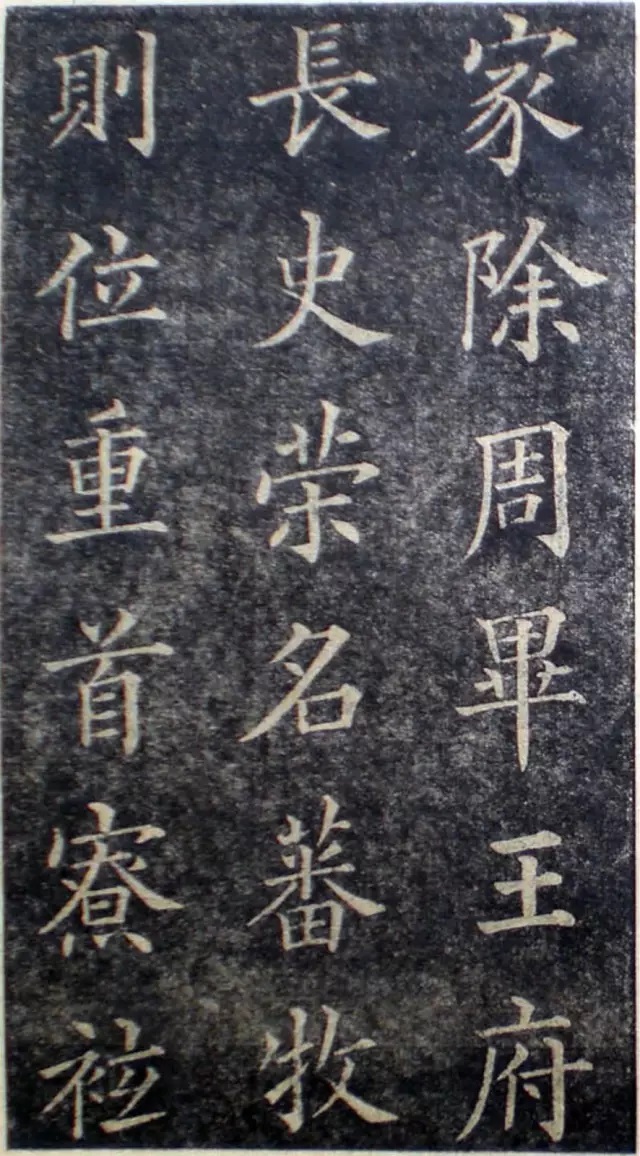 家除周畢王府
長史荣名蕃牧
則位重首寮袏